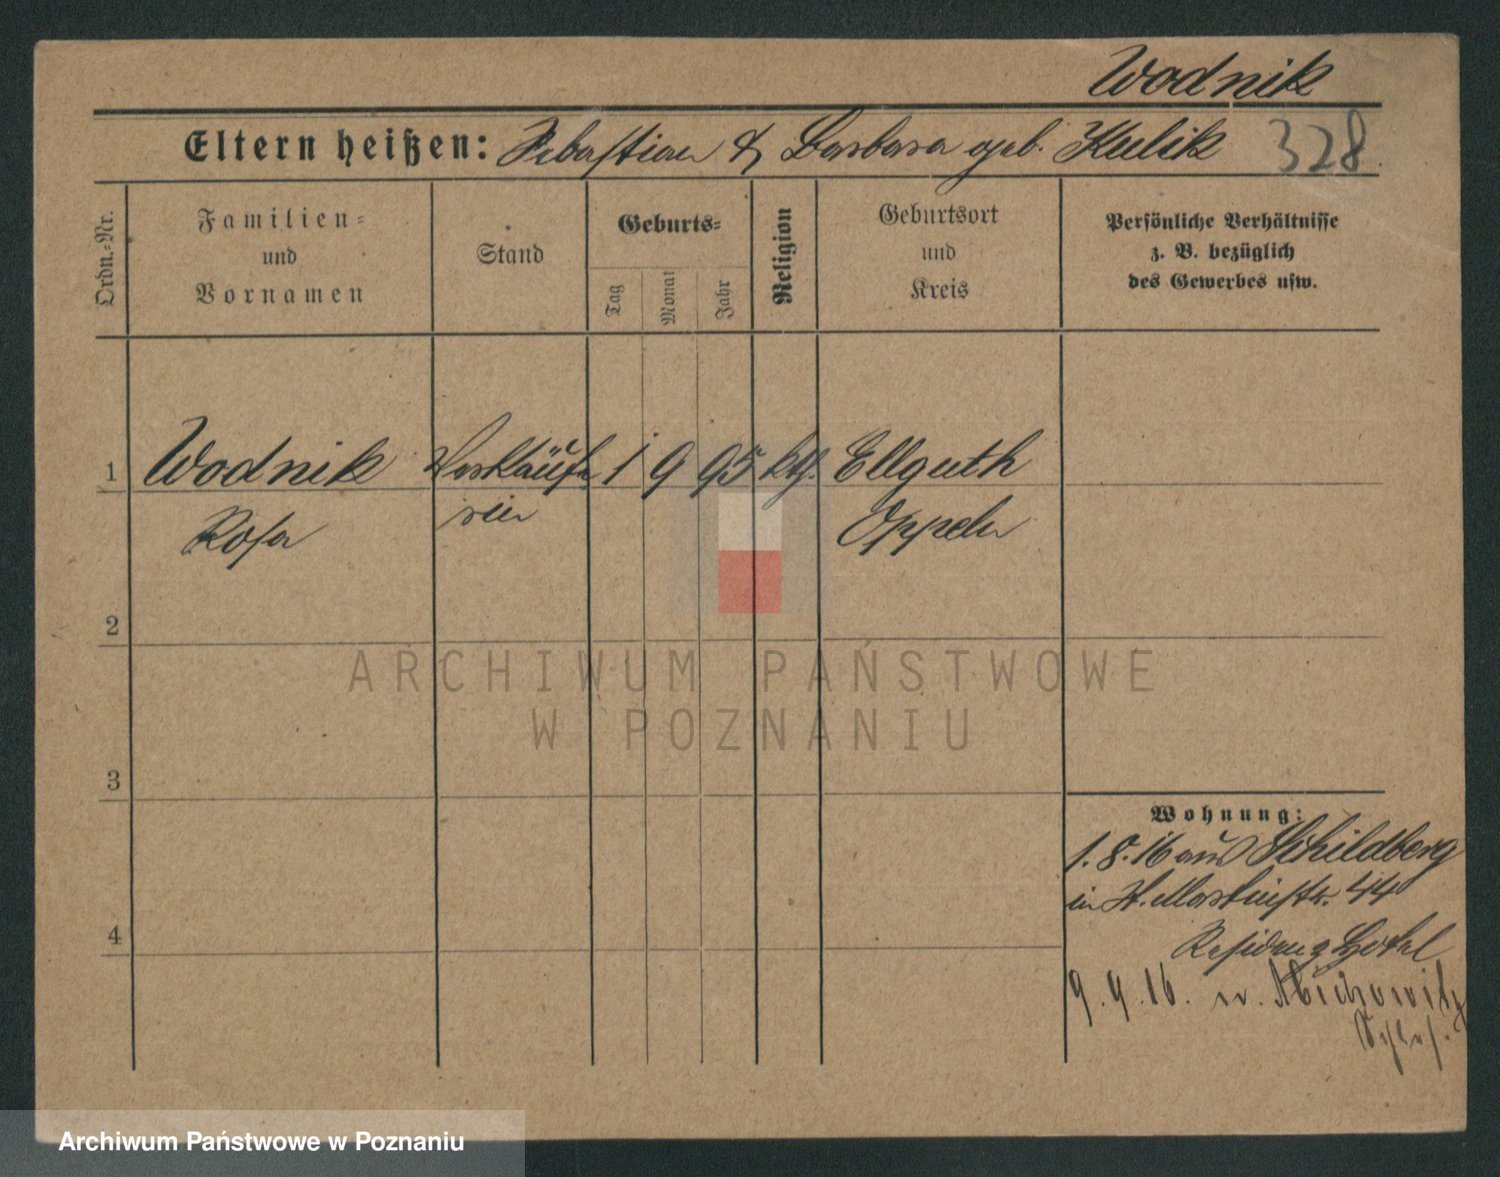 Wodnik
Eltern heißen: Sebastian & Barbara geb. Kulik 328
Ordn.-Nr.
Familien-
und
Vornamen
Stand
Geburts-
Tag
Monat
Jahr
Religion
Geburtsort
und
Kreis
Persönliche Verhältnisse
z. B. bezüglich
des Gewerbes usw.
1 Wodnik Verkäufe 1 9 95 kth. Ellguth
Rosa rin Oppeln
2
ARCHIWUM PAŃSTWOWE
W POZNANIU
3
Wohnung:
1. 8. 16 aus Schildberg
in St. Martinstr. 44
4
Residenz Hotel
9. 9. 16. n. Miechowitz
Schles.
Archiwum Państwowe w Poznaniu